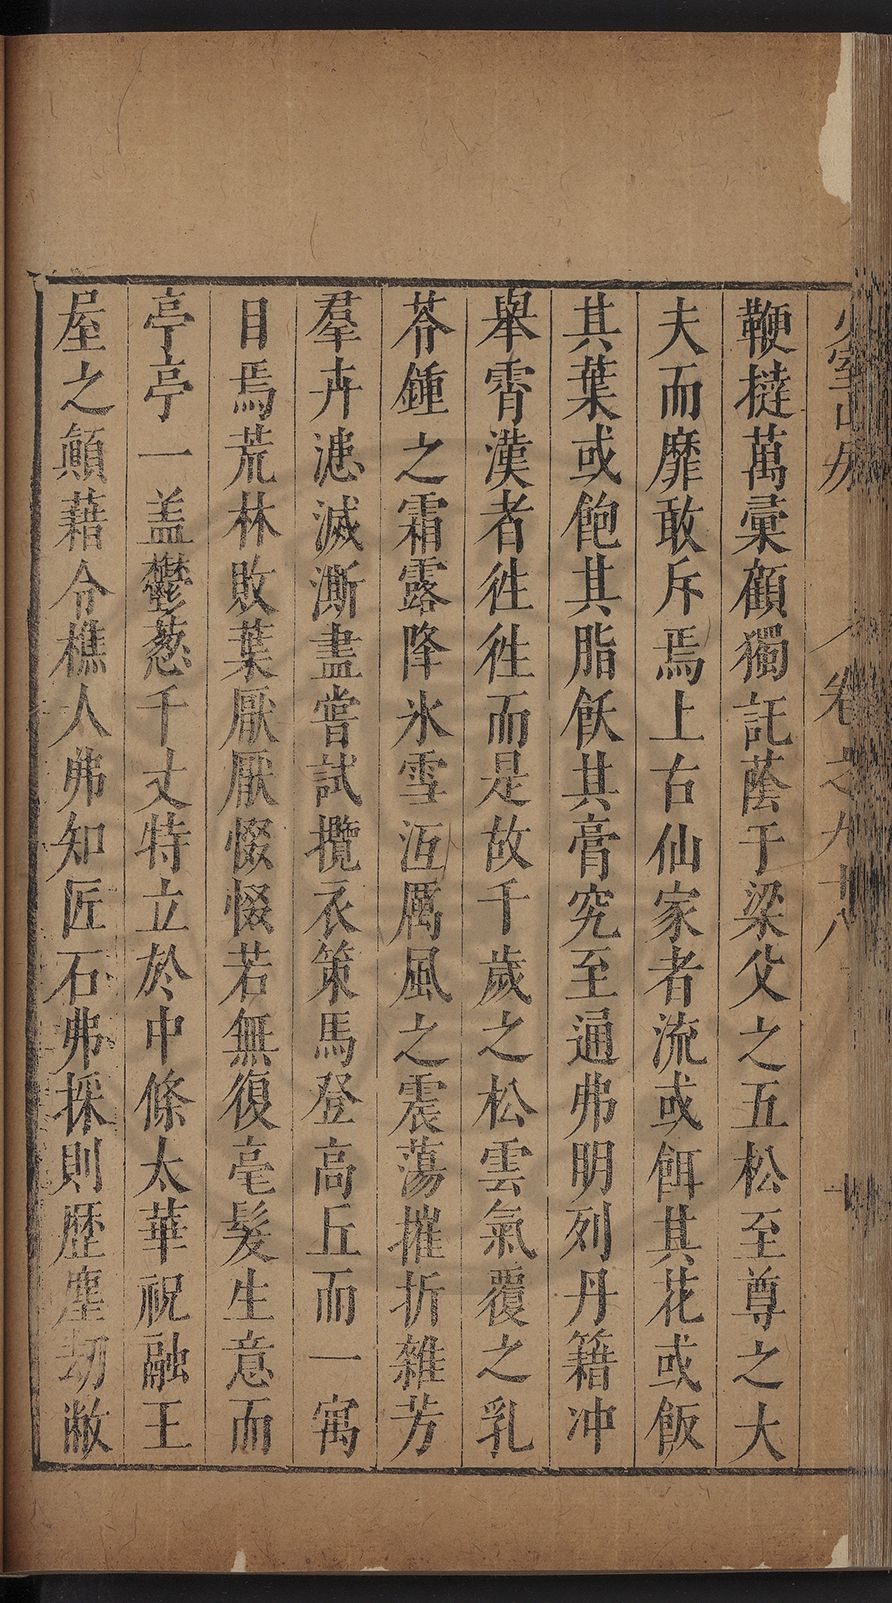 少室山房 卷之九十八 十
鞭撻萬彙顧獨託蔭于梁父之五松至尊之大
夫而靡敢斥焉上古仙家者流或餌其花或飯
其葉或飽其脂飫其膏究至通弗明列丹籍冲
舉霄漢者徃徃而是故千歲之松雲氣覆之乳
苓鍾之霜露降氷雪沍厲風之震蕩摧折雜芳
羣卉漶滅澌盡嘗試攬衣策馬登高丘而一寓
目焉荒林敗葉厭厭惙惙若無復毫髮生意而
亭亭一盖鬱葱千丈特立於中條太華祝融王
屋之顛藉令樵人弗知匠石弗採則歷塵劫敝